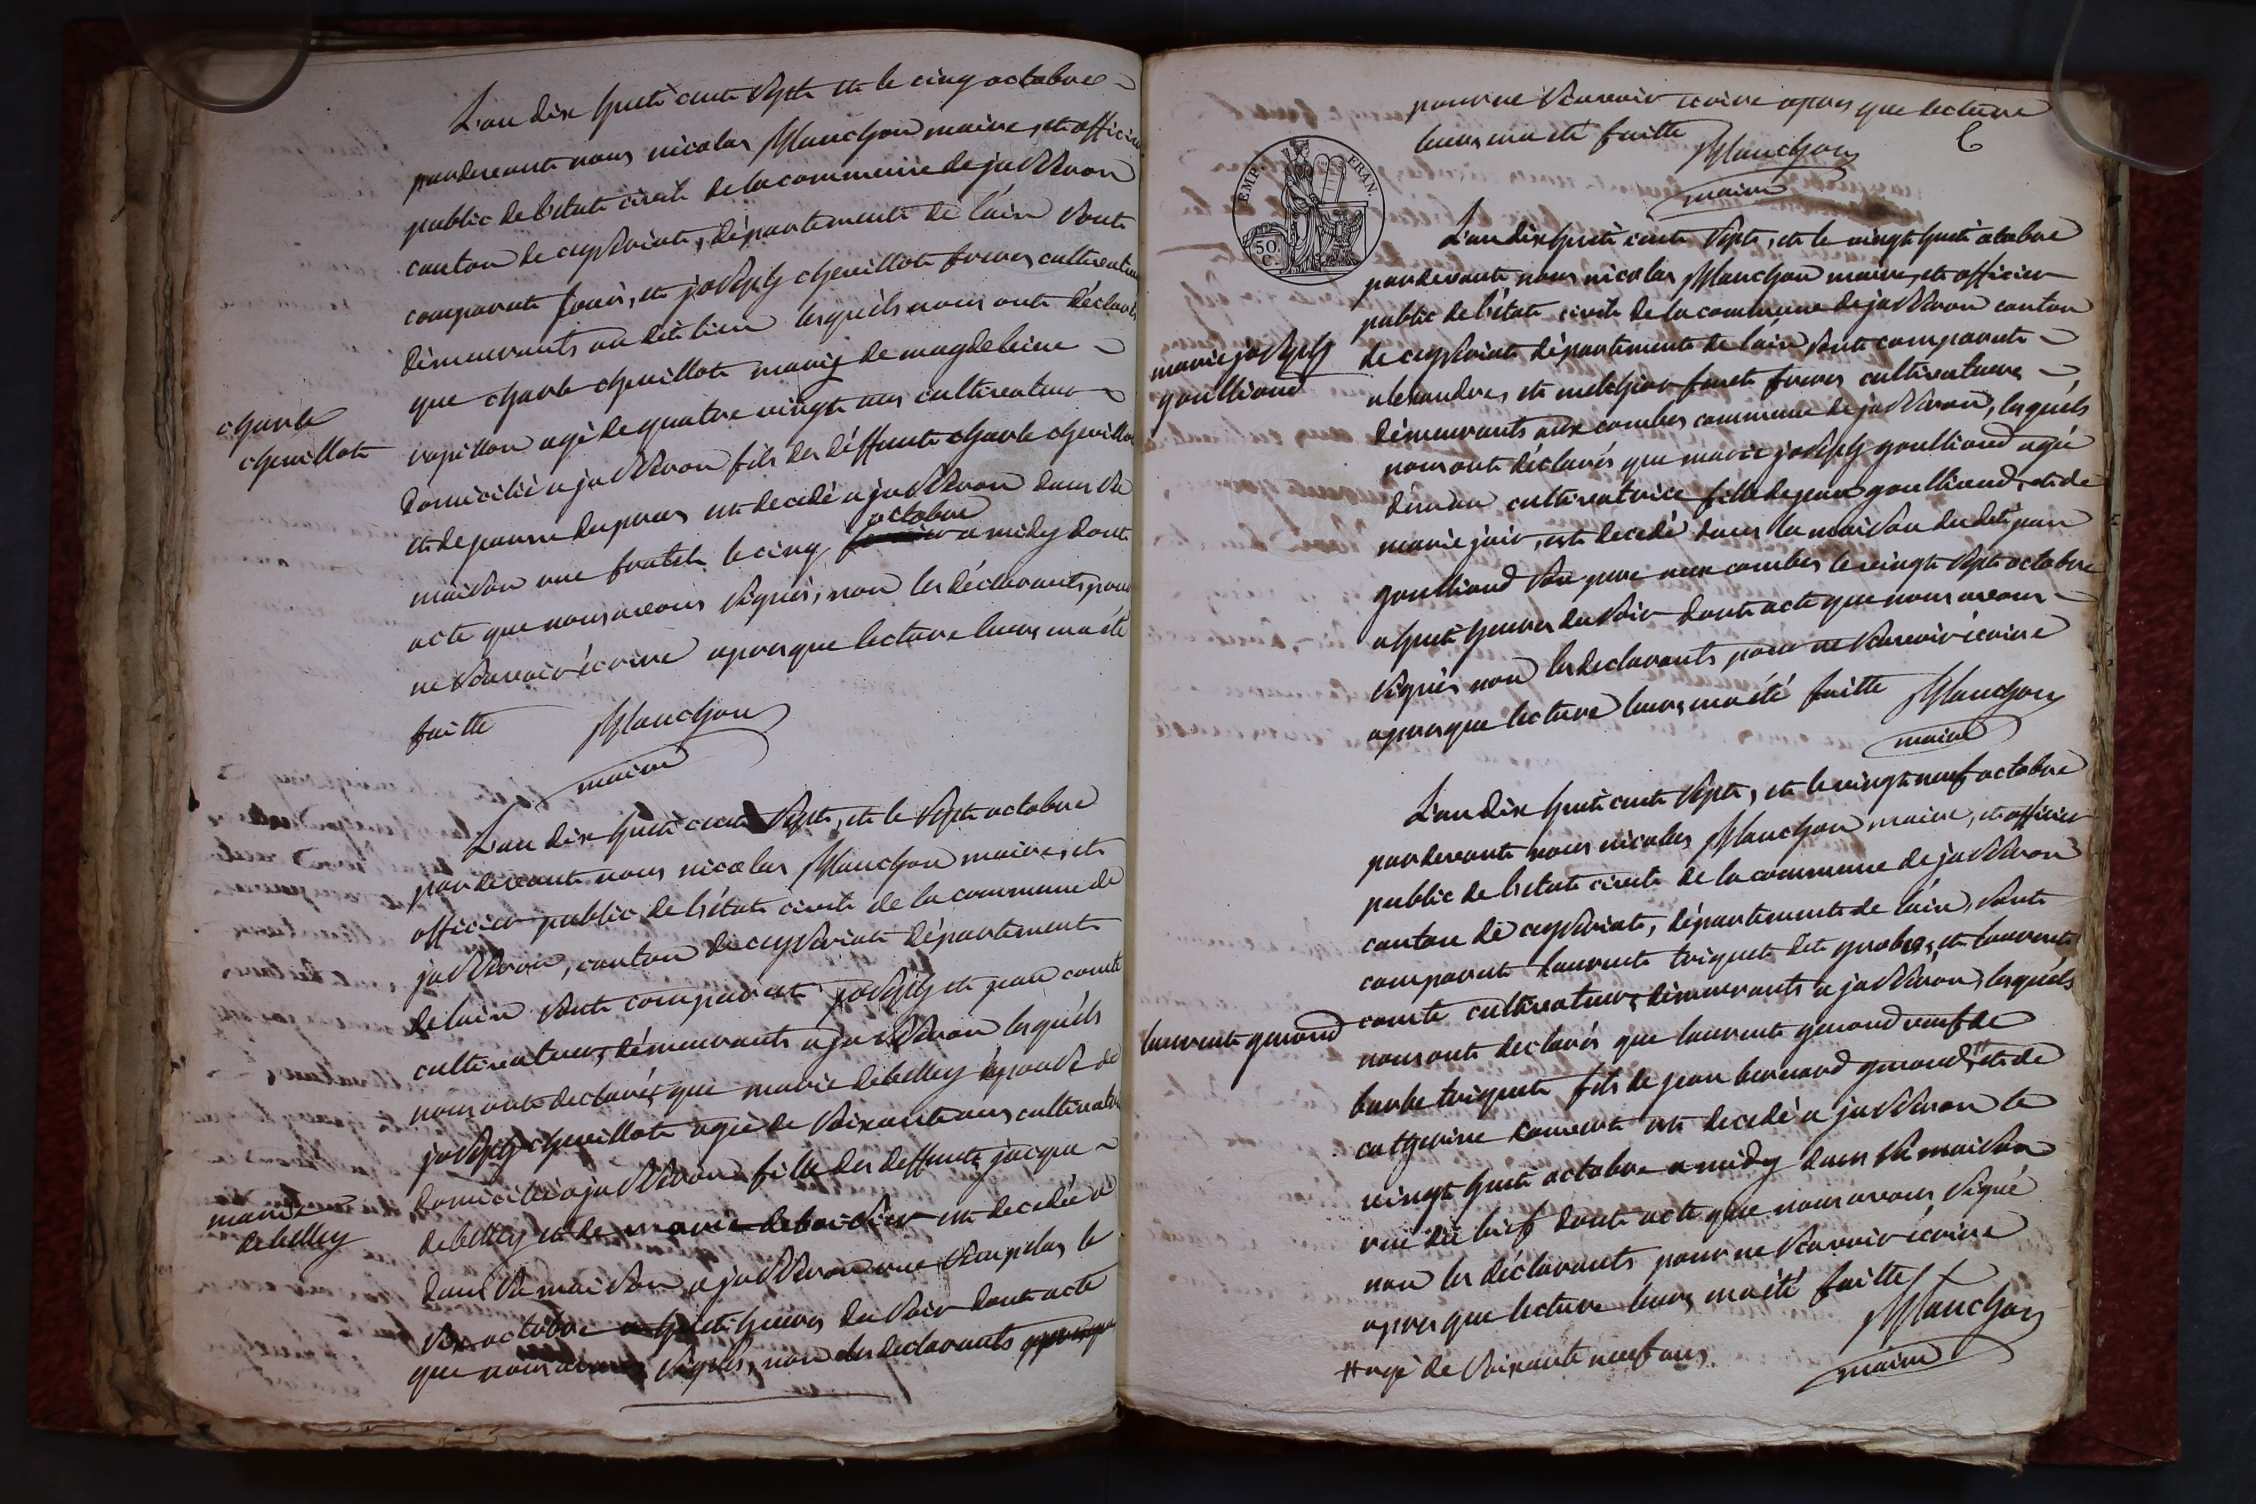 L'an dix huit cent sept et le cinq octobre
pardevant nous nicolas Planchon maire, et officier
public de l'état civil de la commune de jasseron
canton de ceyseriat, département de l'ain sont
comparut et joseph chevillot freres cultivateurs
démeurants au dit lieu lesquéls nous ont déclarés
que charle chevillot mariez de magdeleine
charle
chevillot
rapillon agé de quatre vingt ans cultivateur
domicilié a jasseron fils des déffunt charle chevillot
et de decedé a jasseron dans sa
octobre
maison rue le cinq a midy dont
acte que nous avons signés, non les déclarants pour
ne scavoir écrire apres que lecture leurs ma été
faitte Planchon
maire
L'an dix huit cent sept, et le sept octobre
pardevant nous nicolas Planchon maire, et
officier public de l'état civil de la commune de
jasseron, canton de ceyseriat département
de lain sont comparut joseph et jean comte
cultivateurs, démeurants a jasseron lesquéls
nous ont declarés que marie debelley épouse de
joseph chevillot agée de soixante ans cultivatrice
domicilié a jasseron fille des deffunts jacque
marie
debelley
debelley et de marie est decedée a
dans sa maison a jasseron rue le
six octobre a huit heures du soir dont acte
que nous avons signés, non les declarants
pour ne scavoir ecrire apres que lecture
leurs ma eté faitte Planchon
maire
EMP. FRAN.
50. C.
L'an dix huit cent sept, et le vingt huit octobre
pardevant nous nicolas Planchon maire, et officier
public de l'état civil de la commune de jasseron canton
de ceyseriat département de lain sont comparut
marie joseph
goulliond
alexandre, et melchior freres cultivateurs
démeurants aux combes commune de jasseron, lesquéls
nous ont déclarés que marie joseph goulliond agée
d'un an cultivatrice fille de jean goulliond, et de
marie est decedé dans la maison du dit jean
goulliond son pere aux combes le vingt sept octobre
a huit heures du soir dont acte que nous avons
signés non les declarants pour ne scavoir écrire
apres que lecture leurs ma été faitte Planchon
maire
L'an dix huit cent sept, et le vingt neuf octobre
pardevant nous nicolas Planchon maire, et officier
public de l'état civil de la commune de jasseron
canton de ceyseriat, département de lain, sont
comparut laurent triquet dit et laurent
comte cultivateurs, démeurants a jasseron, lesquéls
laurent
nous ont declarés que laurent veuf de
barbe triquet fils de jean bernard # et de
catherine convert est decedé a jasseron le
vingt huit octobre a midy dans sa maison
rue du bief dont acte que nous avons signé
non les déclarants pour ne scavoir écrire
apres que lecture leurs ma été faitte
Planchon
# agé de soixante neuf ans.
maire